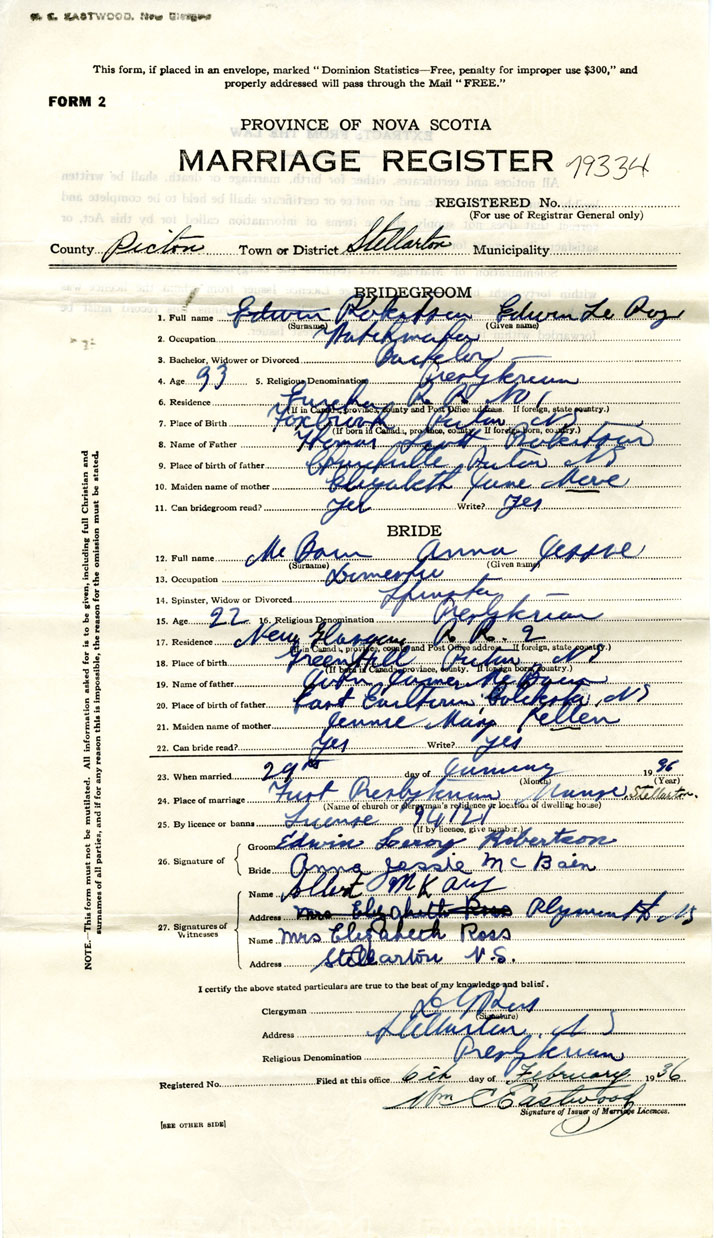 W. C. EASTWOOD, New Glasgow
This form, if placed in an envelope, marked "Dominion Statistics—Free, penalty for improper use $300," and
properly addressed will pass through the Mail "FREE."
FORM 2
PROVINCE OF NOVA SCOTIA
MARRIAGE REGISTER 19334
REGISTERED No.
(For use of Registrar General only)
County Pictou Town or District Stellarton Municipality
BRIDEGROOM
1. Full name Robertson Edwin Le Roy
(Surname) (Given name)
2. Occupation
3. Bachelor, Widower or Divorced Bachelor
4. Age 23 5. Religious Denomination Presbyterian
6. Residence Eureka R R No 1
(If in Canada, province, county and Post Office address. If foreign, state country.)
7. Place of Birth Foxbrook Pictou NS
(If born in Canada, province, county. If foreign born, country.)
8. Name of Father Thomas Scott Robertson
9. Place of birth of father Pictou NS
10. Maiden name of mother Elizabeth Jane
11. Can bridegroom read? Yes Write? Yes
BRIDE
12. Full name McBain Anna Jessie
(Surname) (Given name)
13. Occupation Domestic
14. Spinster, Widow or Divorced Spinster
15. Age 22 16. Religious Denomination Presbyterian
17. Residence New Glasgow R. R. 2
(If in Canada, province, county and Post Office address. If foreign, state country.)
18. Place of birth Greenhill Pictou NS
(If born in Canada, province, county. If foreign born, country.)
19. Name of father John McBain
20. Place of birth of father East Earltown, Colchester, NS
21. Maiden name of mother Jennie Mary
22. Can bride read? Yes Write? Yes
23. When married 29th day of January 1936
(Month) (Year)
24. Place of marriage First Presbyterian Manse, Stellarton.
(Name of church or clergyman's residence or location of dwelling house)
25. By licence or banns License 94121
(If by licence, give number)
26. Signature of
Groom Edwin Leroy Robertson
Bride Anna Jessie McBain
27. Signatures of Witnesses
Name Albert McKay
Address Mrs Elizabeth Ross Plymouth NS
Name Mrs Elizabeth Ross
Address Stellarton N.S.
I certify the above stated particulars are true to the best of my knowledge and belief.
Clergyman Ross
(Signature)
Address Stellarton, NS
Religious Denomination Presbyterian
Registered No. Filed at this office 6th day of February 1936
Wm C Eastwood
Signature of Issuer of Marriage Licences.
[SEE OTHER SIDE]
NOTE.—This form must not be mutilated. All information asked for is to be given, including full Christian and
surnames of all parties, and if for any reason this is impossible, the reason for the omission must be stated.